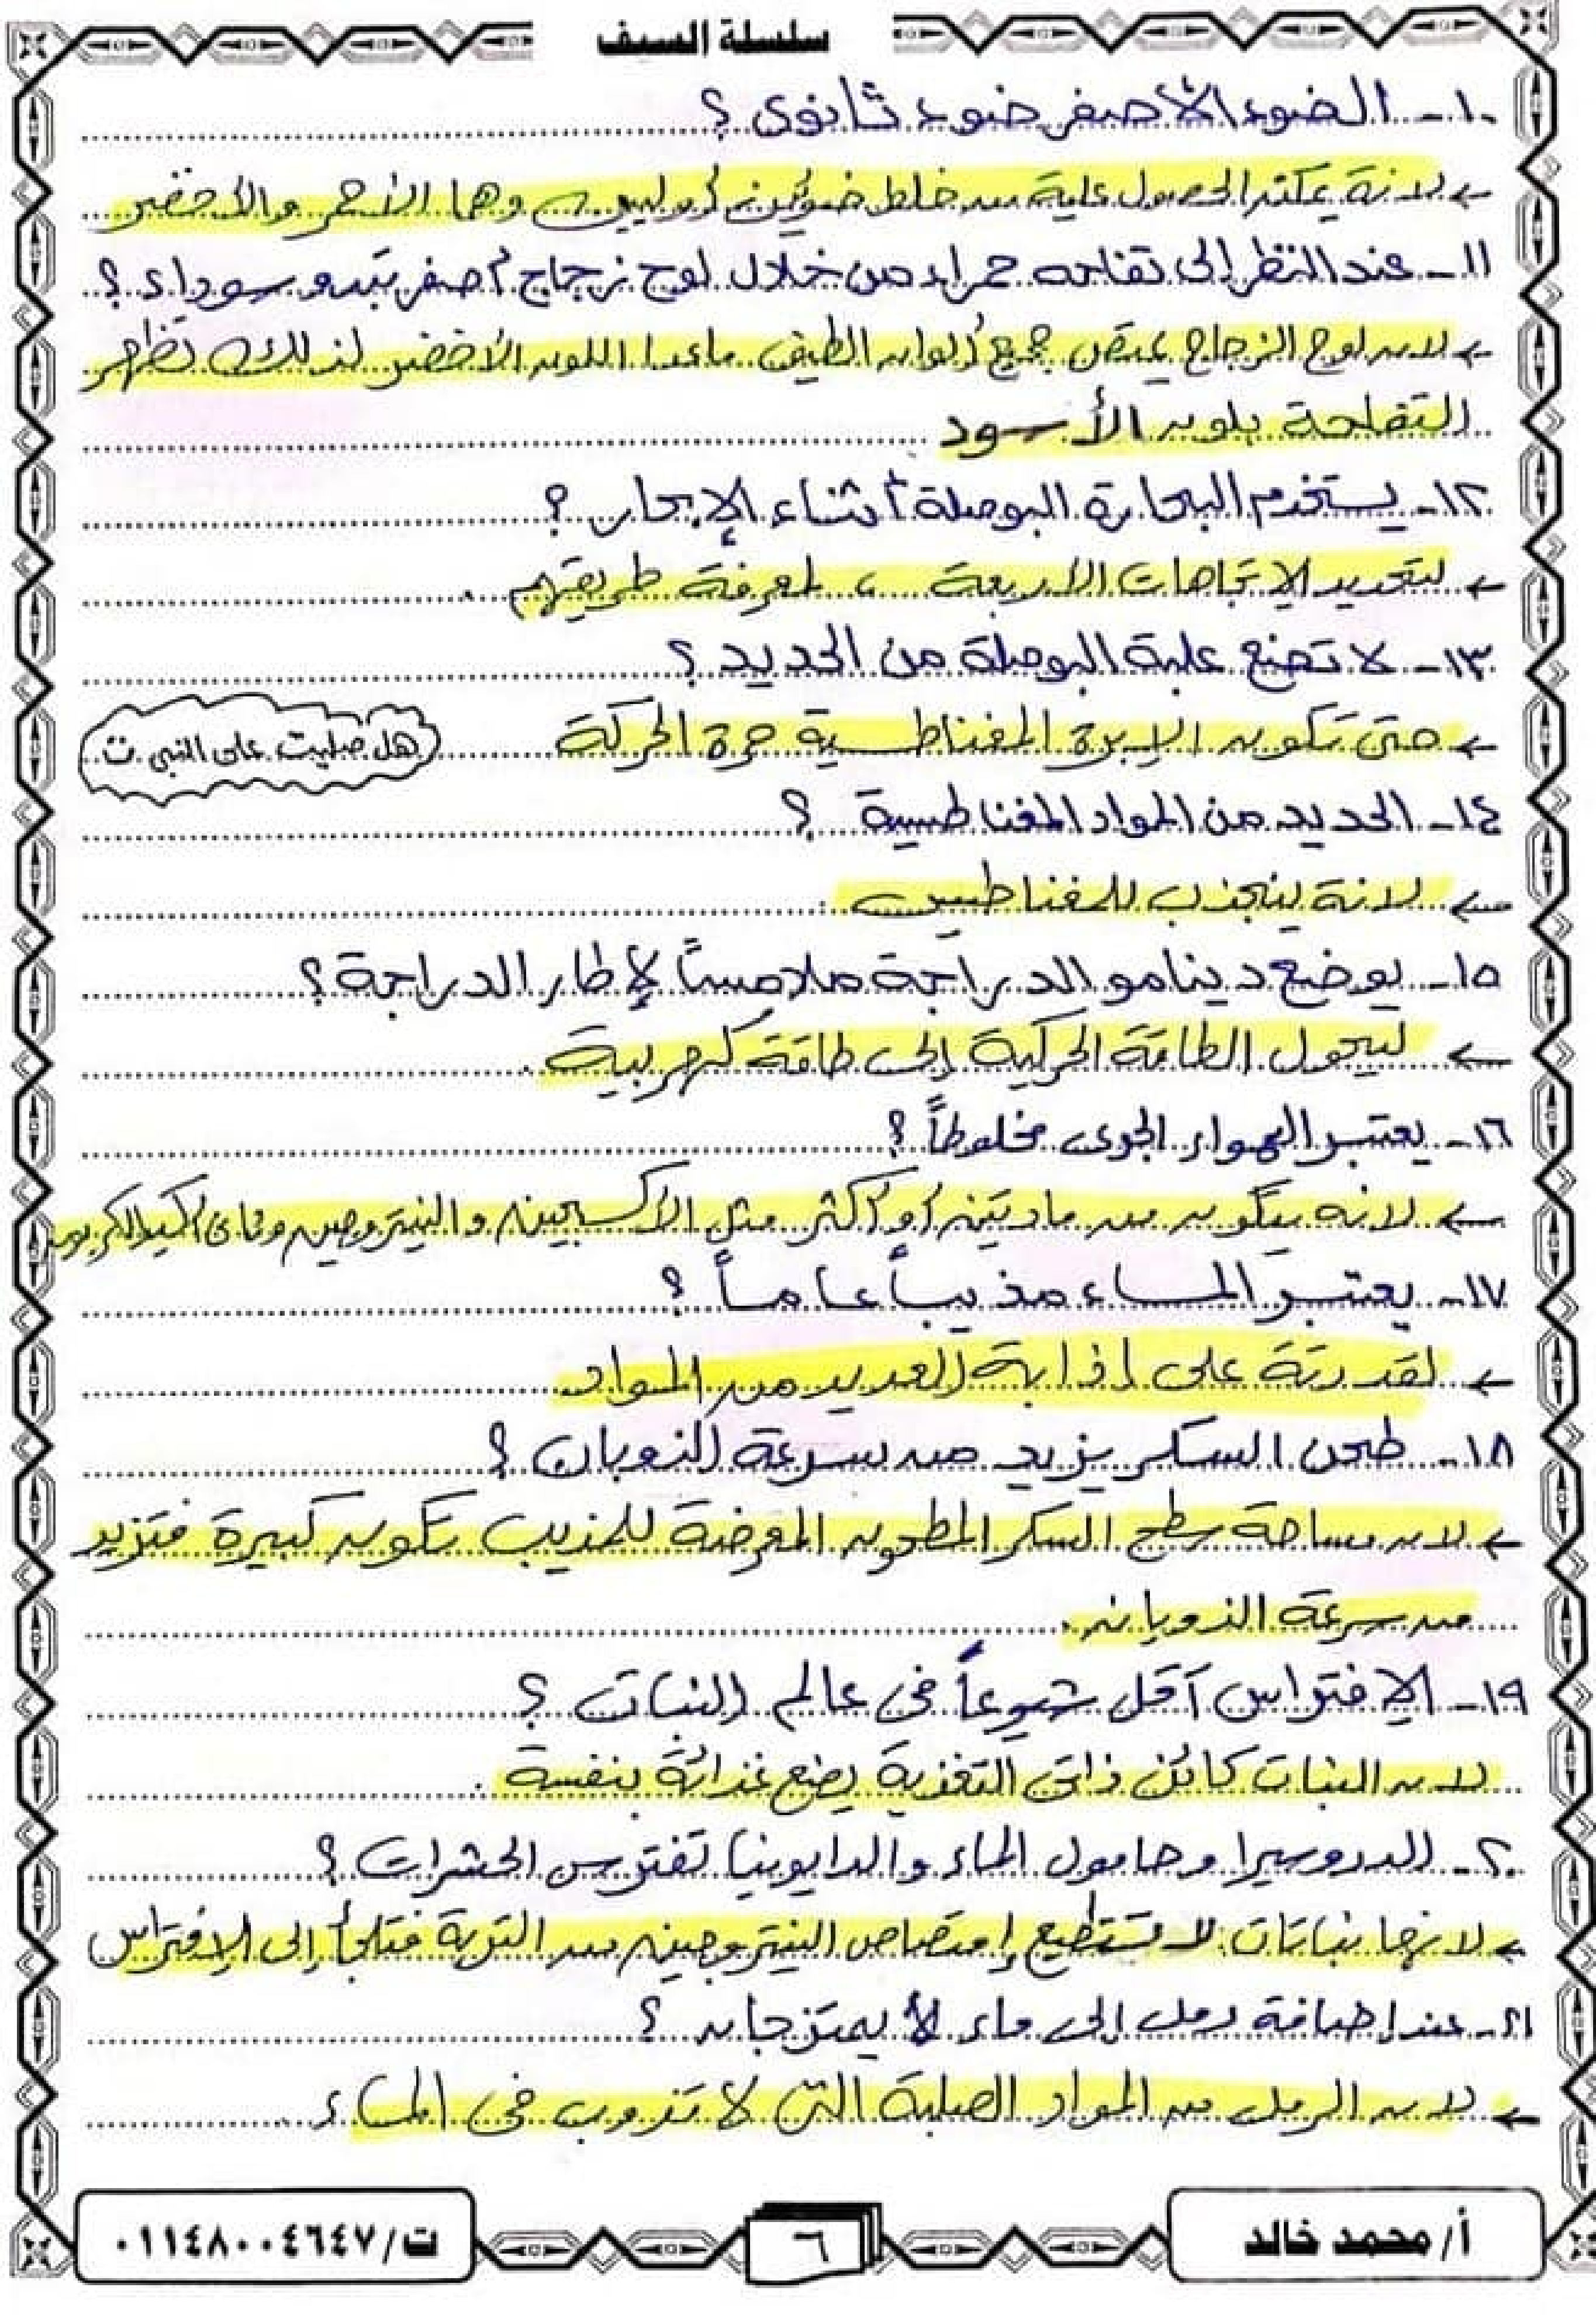 سلسلة السيف
١٠- الضوء الأصفر ضوء ثانوى ؟
← لانة يمكننا الحصول علية من خلط ضوئين أوليين وهما الأحمر والأخضر
١١- عند النظر إلى تفاحه حمراء من خلال لوح زجاج أصفر تبدو سوداء ؟
← لان لوح الزجاج يمتص جميع ألوان الطيف ماعدا اللون الأخضر لذلك تظهر
التفاحة بلون الأسود
١٢- يستخدم البحارة البوصلة أثناء الإبحار ؟
← لتحديد الاتجاهات الأربعة ، لمعرفة طريقهم .
١٣- لا تصنع علبة البوصلة من الحديد ؟
← حتى تكون الإبرة المغناطسية حرة الحركة
هل صليت على النبي ت
١٤- الحديد من المواد المغناطيسية ؟
← لانة ينجذب للمغناطيس .
١٥- يوضع دينامو الدراجة ملامساً لإطار الدراجة ؟
← ليحول الطاقة الحركية إلى طاقة كهربية .
١٦- يعتبر الهواء الجوى مخلوطاً ؟
← لانه يتكون من مادتين أو أكثر مثل الأكسجين والنيتروجين وثانى أكسيد الكربون
١٧- يعتبر الماء مذيباً عاماً ؟
← لقدرتة على إذابة العديد من المواد
١٨- طحن السكر يزيد من سرعة الذوبان ؟
← لان مساحة سطح السكر المطحون المعرضة للمذيب تكون كبيرة فتزيد
من سرعة الذوبان .
١٩- الإفتراس أقل شيوعاً فى عالم النبات ؟
لان النبات كائن ذاتى التغذية يصنع غذائة بنفسة .
٢٠- الدروسيرا وحامول الماء والدايونيا تفترس الحشرات ؟
← لانها نباتات لا تستطيع إمتصاص النيتروجين من التربة فتلجأ إلى الإفتراس
٢١- عند إضافة رمل إلى ماء لا يمتزجان ؟
← لان الرمل من المواد الصلبة التى لا تذوب فى الماء
أ/ محمد خالد
٦
ت/ ٠١١٤٨٠٠٤٦٤٧